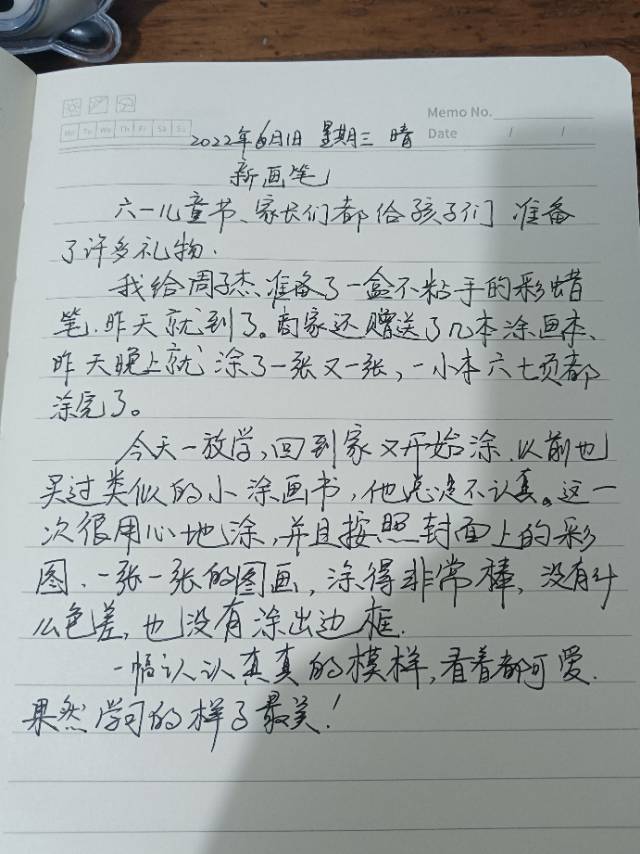 Memo No.
Mo Tu We Th Fr Sa Su
Date / /
2022年6月1日 星期三 晴
新画笔
六一儿童节、家长们都给孩子们 准备
了许多礼物.
我给周子杰准备了一盒不粘手的彩蜡
笔.昨天就到了。商家还赠送了几本涂画本、
昨天晚上就涂了一张又一张,一小本六七页都
涂完了。
今天一放学,回到家又开始涂.以前也
买过类似的小涂画书,他总是不认真。这一
次很用心地涂,并且按照封面上的彩
图.一张一张的图画,涂得非常棒,没有什
么色差,也没有涂出边框.
一幅认认真真的模样,看着都可爱.
果然学习的样子最美!